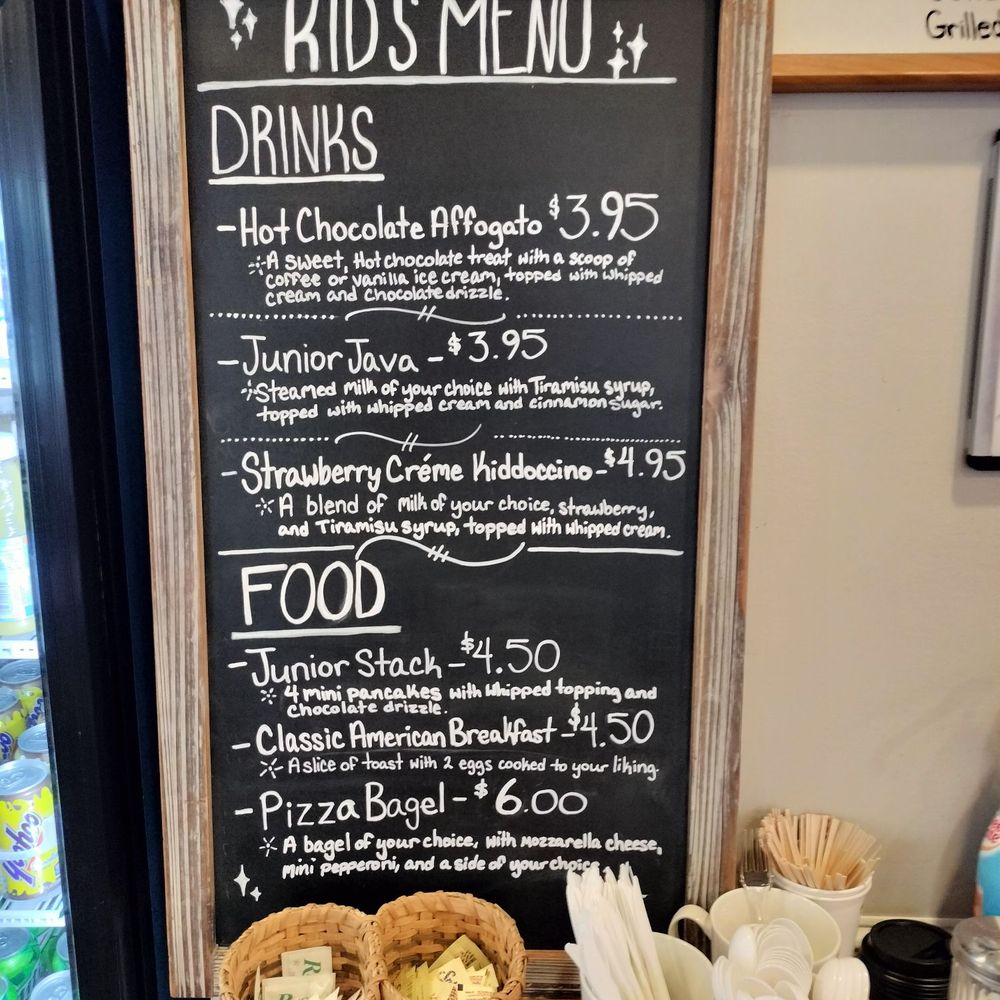 KID'S MENU
Grilled
DRINKS
- Hot Chocolate Affogato $3.95
A sweet, Hot chocolate treat with a scoop of
coffee or vanilla ice cream, topped with whipped
cream and Chocolate drizzle.
- Junior Java - $3.95
Steamed milk of your choice with Tiramisu syrup,
topped with whipped cream and cinnamon sugar.
- Strawberry Créme Kiddoccino - $4.95
A blend of milk of your choice, strawberry,
and Tiramisu syrup, topped with whipped cream.
FOOD
- Junior Stack - $4.50
4 mini pancakes with whipped topping and
Chocolate drizzle.
- Classic American Breakfast - $4.50
A slice of toast with 2 eggs cooked to your liking.
- Pizza Bagel - $6.00
A bagel of your choice, with mozzarella cheese,
mini pepperoni, and a side of your choice